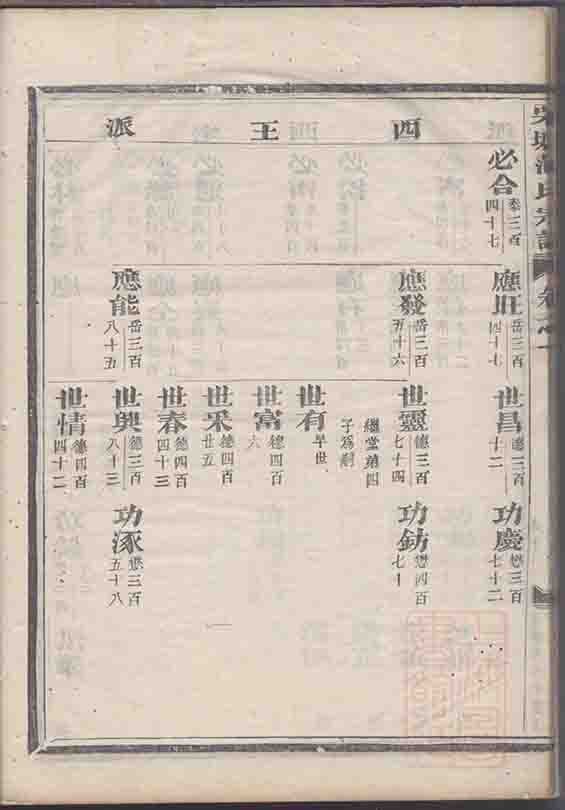 派 王 四
必合 泰三百四十七
應旺 岳三百四十七
應發 岳三百五十六
應能 岳三百八十五
世昌 德三百十二
世靈 德三百七十四
繼堂弟四子爲嗣
世有 早世
世富 德四百六
世采 德四百廿五
世春 德四百四十三
世興 德三百八十三
世情 德四百四十二
功慶 懋三百七十二
功鈁 懋四百七十
功涿 懋三百五十八
氏宗譜